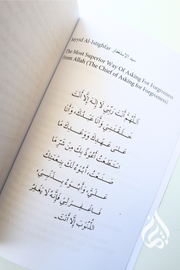 Sayyid Al-Istighfar سيد الاستغفار
The Most Superior Way Of Asking For Forgiveness
from Allah (The Chief of Asking for Forgiveness)
اَللّٰهُمَّ أَنْتَ رَبِّي لَا إِلٰهَ إِلَّا أَنْتَ
خَلَقْتَنِي وَأَنَا عَبْدُكَ وَأَنَا
عَلَى عَهْدِكَ وَوَعْدِكَ مَا
اسْتَطَعْتُ أَعُوذُ بِكَ مِنْ شَرِّ مَا
صَنَعْتُ، أَبُوءُ لَكَ بِنِعْمَتِكَ
عَلَيَّ، وَأَبُوءُ بِذَنْبِي
فَاغْفِرْ لِي فَإِنَّهُ لَا يَغْفِرُ
الذُّنُوبَ إِلَّا أَنْتَ.